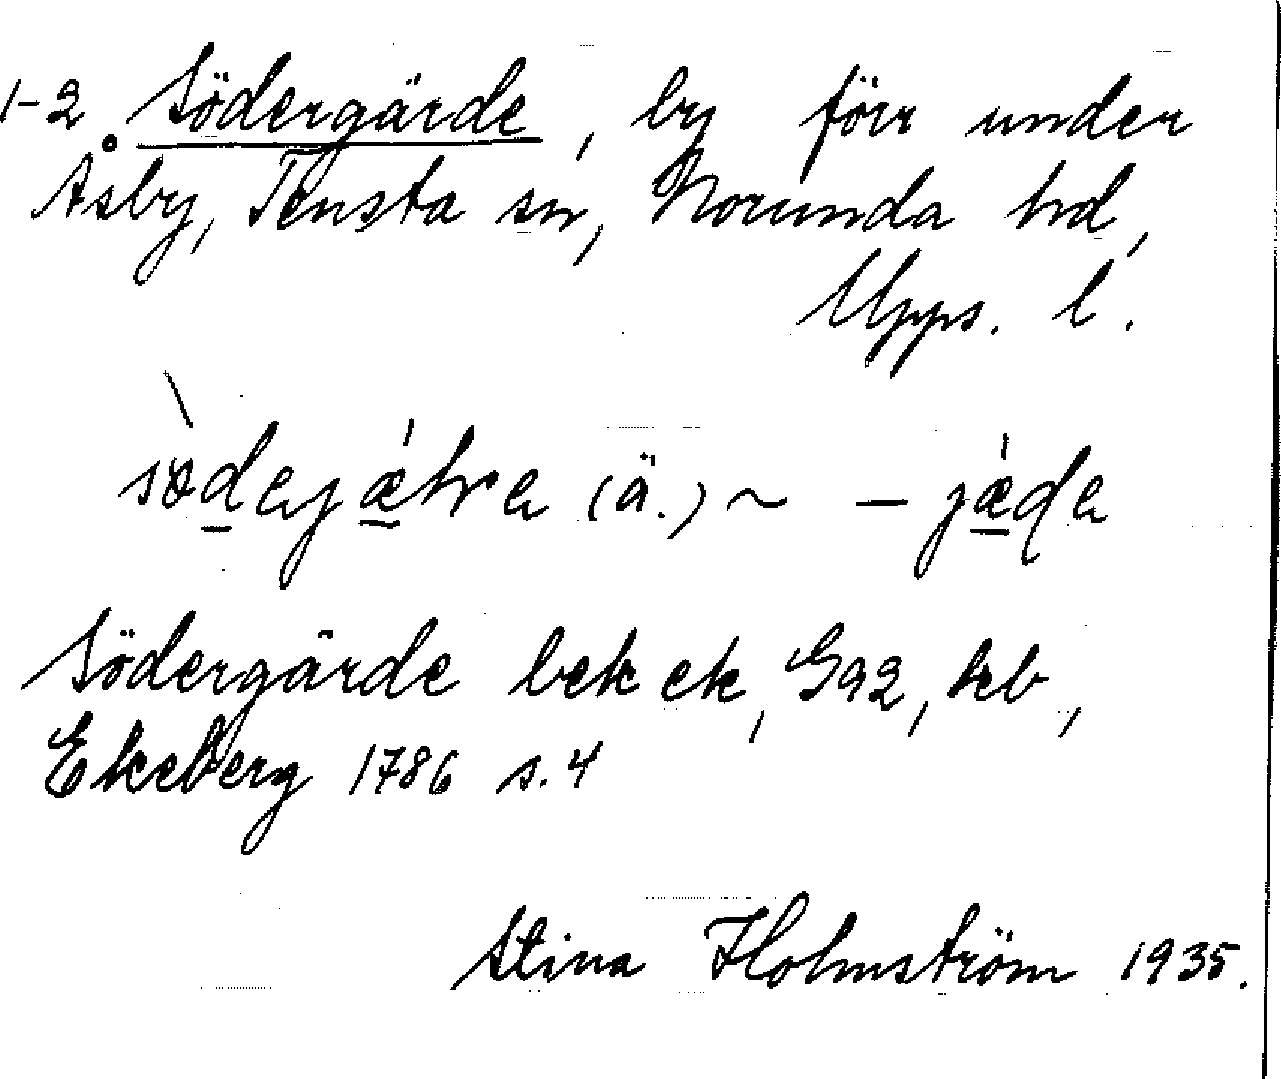 1-2 Södergärde, by förr under
Åsby, Tensta sn, Norunda hd,
Upps. l.
(ä.) ~ —
Södergärde bek ek, Ga2, kb,
Ekeberg 1786 s. 4
Stina Holmström 1935.